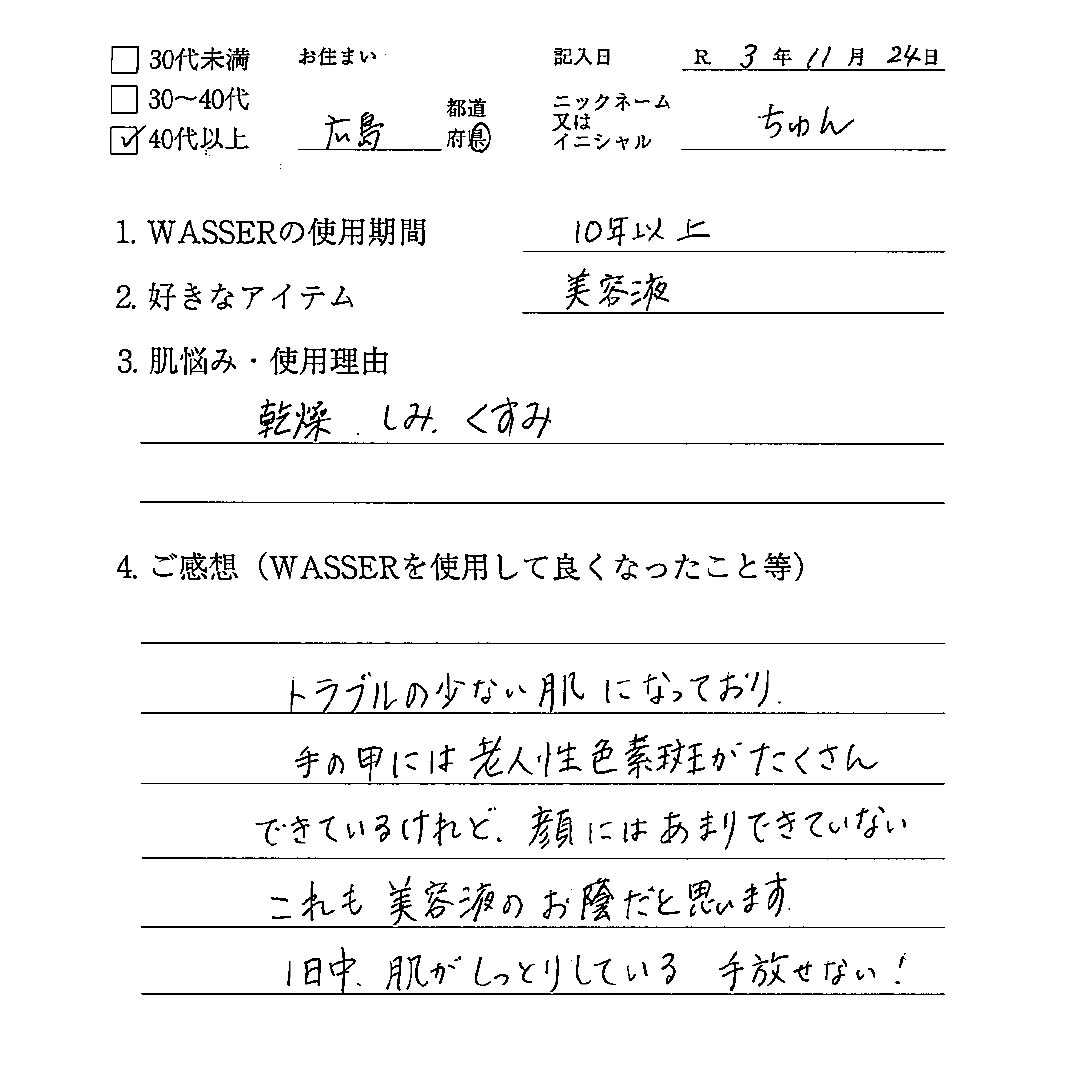 □ 30代未満 お住まい 記入日 R 3 年 11 月 24 日
□ 30〜40代 都道 ニックネーム
☑ 40代以上 広島 府県 又は ちゅん
イニシャル
1. WASSERの使用期間 10年以上
2. 好きなアイテム 美容液
3. 肌悩み・使用理由
乾燥、しみ、くすみ
4. ご感想（WASSERを使用して良くなったこと等）
トラブルの少ない肌になっており、
手の甲には老人性色素斑がたくさん
できているけれど、顔にはあまりできていない
これも美容液のお陰だと思います。
1日中、肌がしっとりしている 手放せない！